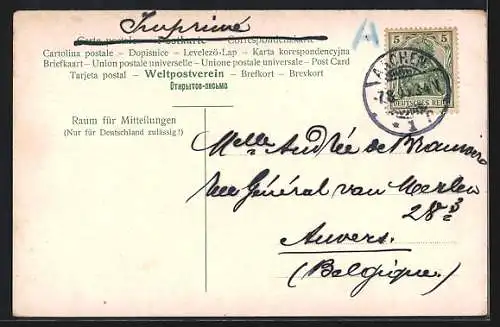 Imprimé
Carte postale — Postkarte — Correspondenzkarte
Cartolina postale — Dopisnice — Levelező-Lap — Karta korespondencyjna
Briefkaart — Union postale universelle — Unione postale universale — Post Card
Tarjeta postal — Weltpostverein — Brefkort — Brevkort
Открытое-письмо
A
5 5
AACHEN
DEUTSCHES REICH
1
Raum für Mitteilungen
(Nur für Deutschland zulässig!)
Melle Andrée de
Rue Général van Merlen
28
Anvers.
(Belgique.)